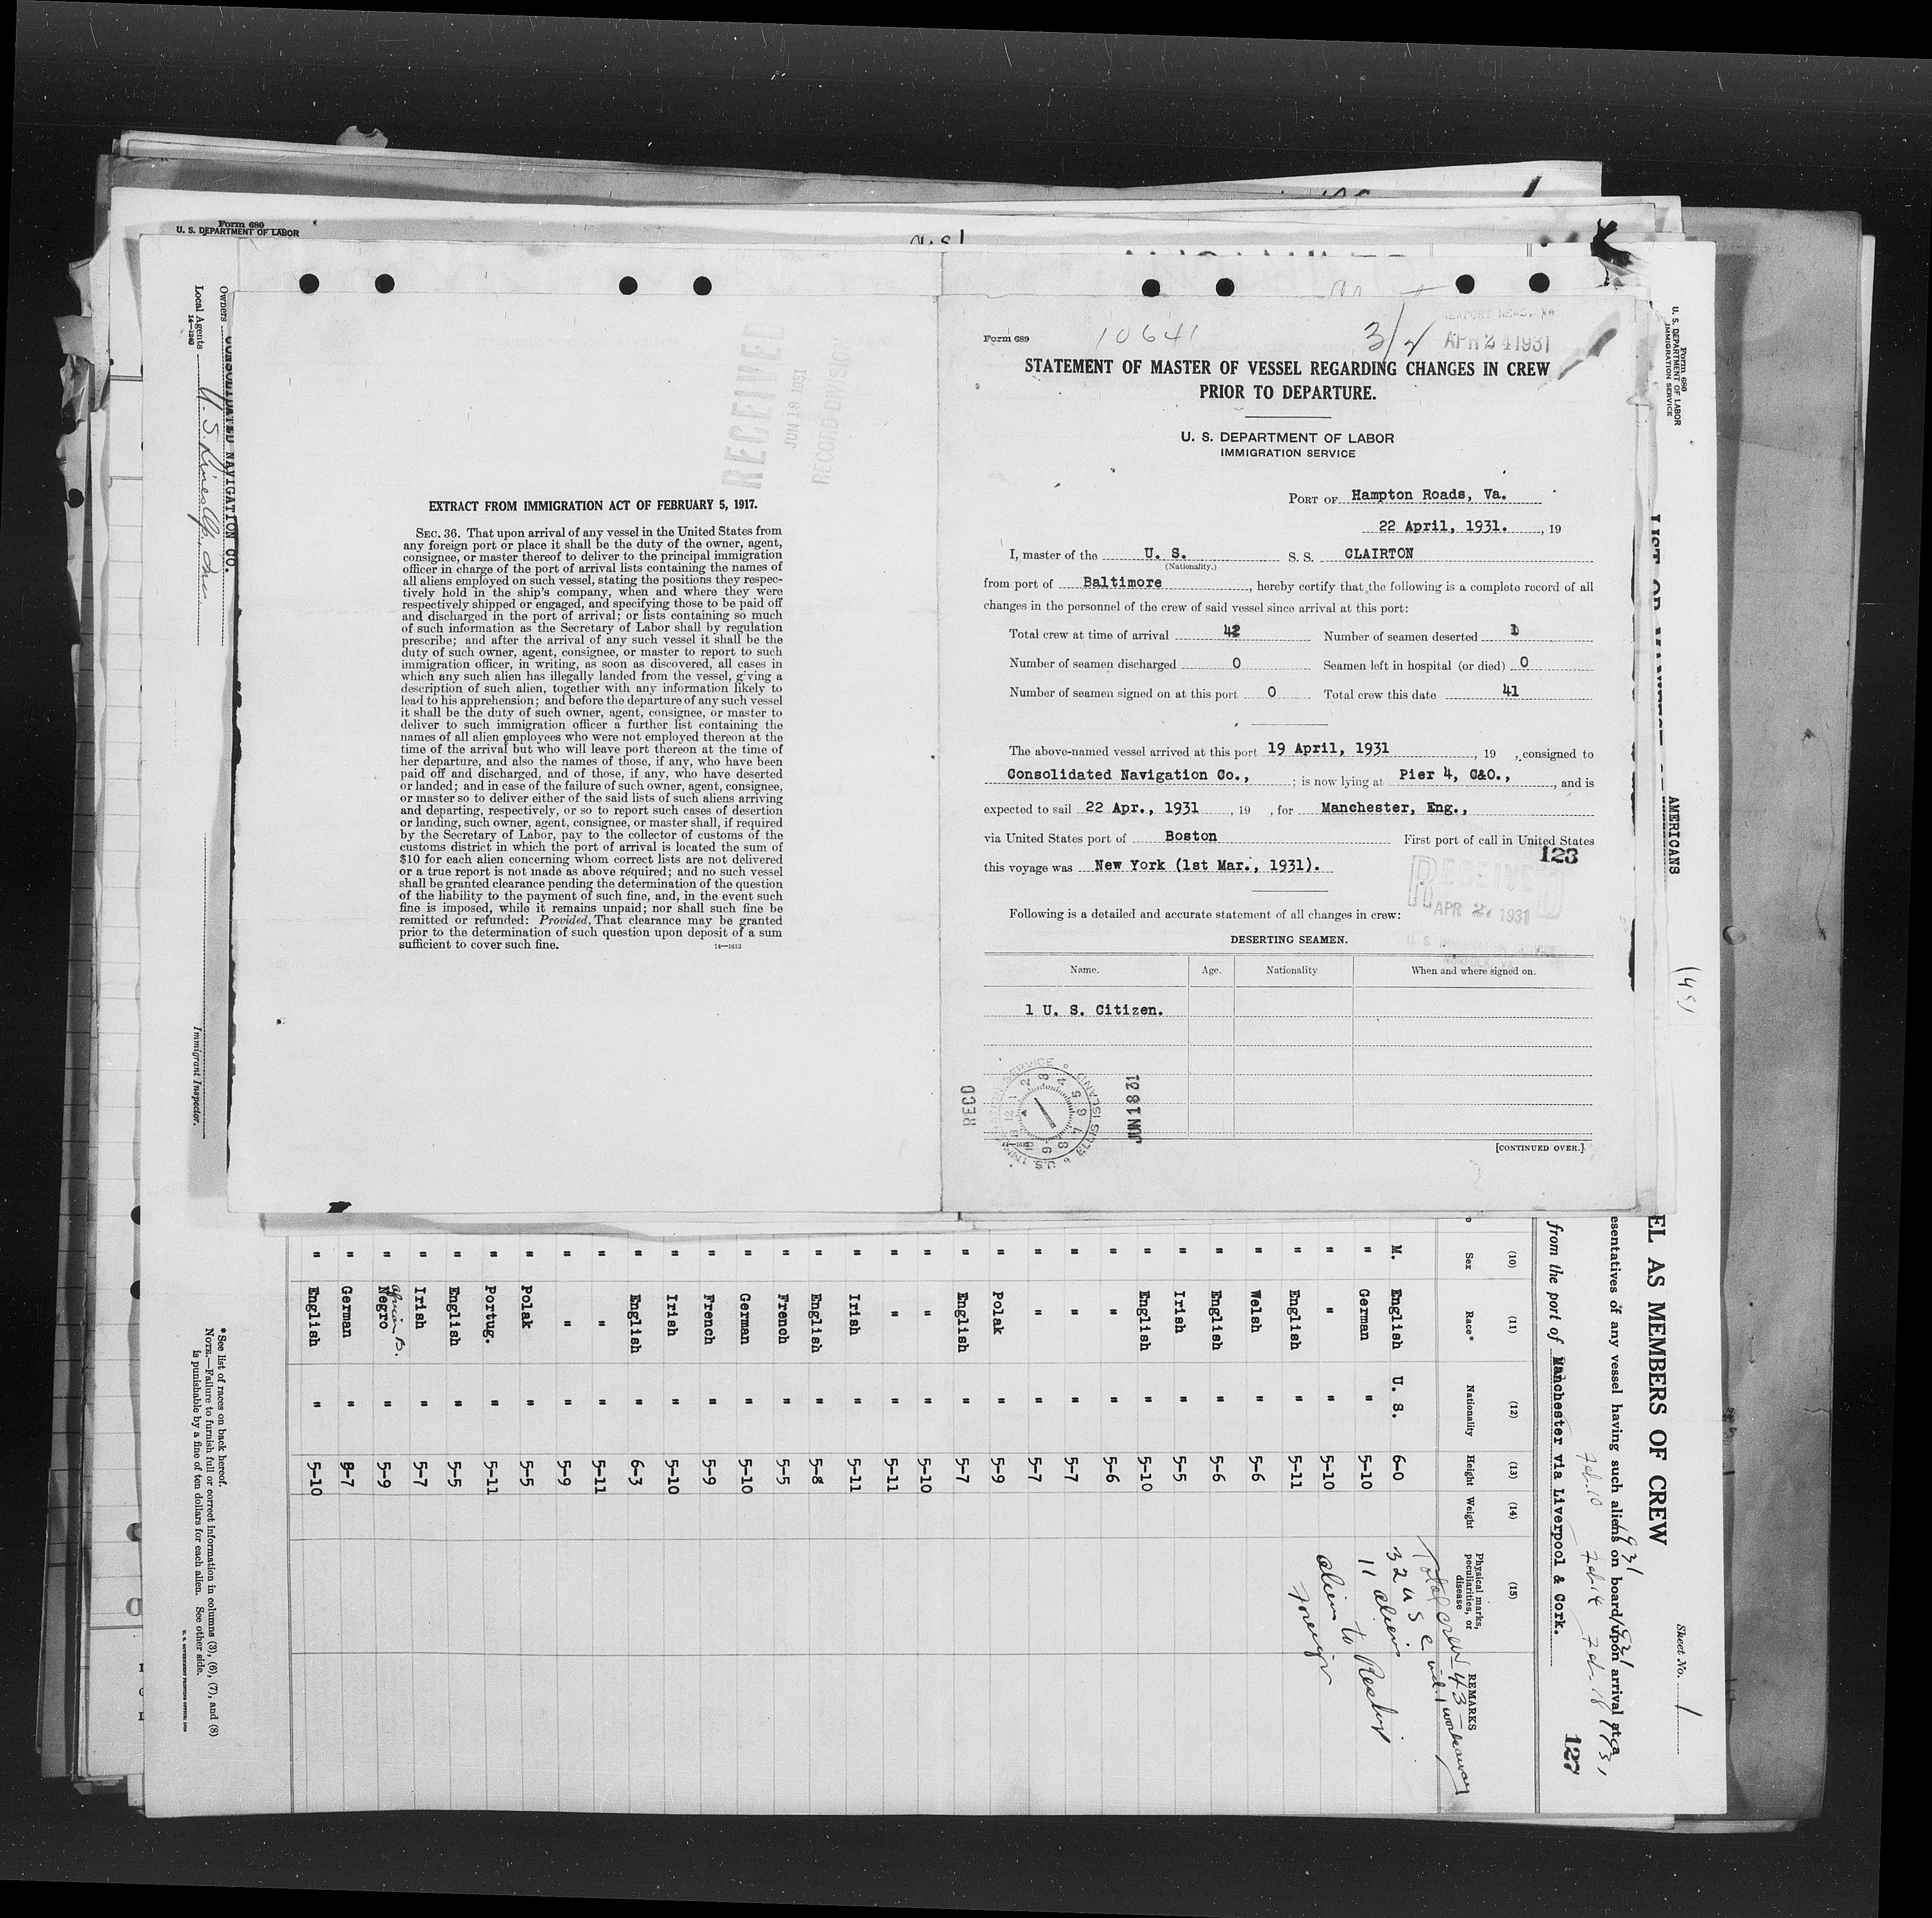 Form 680
U. S. DEPARTMENT OF LABOR
Owners CONSOLIDATED NAVIGATION CO.
Local Agents U. S. Lines Co. Inc.
14—1240
Immigrant Inspector.
RECEIVED
JUN 18 1931
RECORD DIVISION
EXTRACT FROM IMMIGRATION ACT OF FEBRUARY 5, 1917.
SEC. 36. That upon arrival of any vessel in the United States from
any foreign port or place it shall be the duty of the owner, agent,
consignee, or master thereof to deliver to the principal immigration
officer in charge of the port of arrival lists containing the names of
all aliens employed on such vessel, stating the positions they respec-
tively hold in the ship's company, when and where they were
respectively shipped or engaged, and specifying those to be paid off
and discharged in the port of arrival; or lists containing so much
of such information as the Secretary of Labor shall by regulation
prescribe; and after the arrival of any such vessel it shall be the
duty of such owner, agent, consignee, or master to report to such
immigration officer, in writing, as soon as discovered, all cases in
which any such alien has illegally landed from the vessel, giving a
description of such alien, together with any information likely to
lead to his apprehension; and before the departure of any such vessel
it shall be the duty of such owner, agent, consignee, or master to
deliver to such immigration officer a further list containing the
names of all alien employees who were not employed thereon at the
time of the arrival but who will leave port thereon at the time of
her departure, and also the names of those, if any, who have been
paid off and discharged, and of those, if any, who have deserted
or landed; and in case of the failure of such owner, agent, consignee,
or master so to deliver either of the said lists of such aliens arriving
and departing, respectively, or so to report such cases of desertion
or landing, such owner, agent, consignee, or master shall, if required
by the Secretary of Labor, pay to the collector of customs of the
customs district in which the port of arrival is located the sum of
$10 for each alien concerning whom correct lists are not delivered
or a true report is not made as above required; and no such vessel
shall be granted clearance pending the determination of the question
of the liability to the payment of such fine, and, in the event such
fine is imposed, while it remains unpaid; nor shall such fine be
remitted or refunded: Provided, That clearance may be granted
prior to the determination of such question upon deposit of a sum
sufficient to cover such fine.
14—1613
Form 689
10641
APR 24 1931
STATEMENT OF MASTER OF VESSEL REGARDING CHANGES IN CREW
PRIOR TO DEPARTURE.
U. S. DEPARTMENT OF LABOR
IMMIGRATION SERVICE
PORT OF Hampton Roads, Va.
22 April, 1931. , 19
I, master of the U. S. S. S. CLAIRTON
(Nationality.)
from port of Baltimore , hereby certify that the following is a complete record of all
changes in the personnel of the crew of said vessel since arrival at this port:
Total crew at time of arrival 42 Number of seamen deserted 1
Number of seamen discharged 0 Seamen left in hospital (or died) 0
Number of seamen signed on at this port 0 Total crew this date 41
The above-named vessel arrived at this port 19 April, 1931 , 19 , consigned to
Consolidated Navigation Co., ; is now lying at Pier 4, C&O., , and is
expected to sail 22 Apr., 1931 , 19 , for Manchester, Eng.,
via United States port of Boston First port of call in United States
this voyage was New York (1st Mar., 1931).
123
RECEIVED
APR 2 1931
Following is a detailed and accurate statement of all changes in crew:
DESERTING SEAMEN.
Name. Age. Nationality When and where signed on.
1 U. S. Citizen.
RECD
U.S. IMMIGRATION SERVICE ELLIS ISLAND
JUN 18 31
[CONTINUED OVER.]
Form 680
U. S. DEPARTMENT OF LABOR
IMMIGRATION SERVICE
AMERICANS
EL AS MEMBERS OF CREW
Sheet No. 1
esentatives of any vessel having such aliens on board upon arrival at a
from the port of Manchester via Liverpool & Cork.
Feb. 10 Feb. 14 Feb. 18
127
(10) (11) (12) (13) (14) (15)
Sex Race* Nationality Height Weight Physical marks, peculiarities, or disease REMARKS
M. English U. S. 6-0
" German " 5-10
" " " 5-10
" English " 5-11
" Welsh " 5-6
" English " 5-6
" Irish " 5-5
" English " 5-10
" " " 5-6
" " " 5-7
" " " 5-7
" Polak " 5-9
" English " 5-7
" " " 5-10
" " " 5-11
" Irish " 5-11
" English " 5-8
" French " 5-5
" German " 5-10
" French " 5-9
" Irish " 5-10
" English " 6-3
" " " 5-11
" " " 5-9
" Polak " 5-5
" Portug. " 5-11
" English " 5-5
" Irish " 5-7
" Negro African B. " 5-9
" German " 5-7
" English " 5-10
Total crew 43 —
32 U S C incl. 1 workaway
11 aliens
aliens to Reship
foreign
*See list of races on back hereof.
NOTE.—Failure to furnish full or correct information in columns (3), (6), (7), and (8)
is punishable by a fine of ten dollars for each alien. See other side.